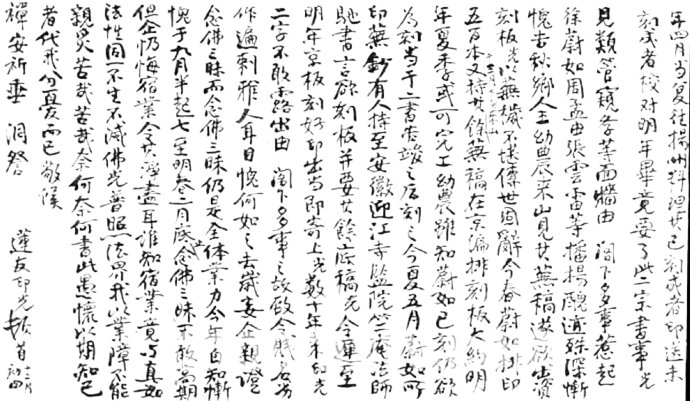 年四月当复往揚州料理其已刻成者印送未
刻成者校对明年畢竟要了此一宗書事光
見類管窺學等面牆由 閣下多事惹起
徐蔚如周孟由張雲雷等播揚醜迹殊深慚
愧去秋鄉人王幼農来山見其蕪稿遂欲出資
刻板光以蕪穢不堪傳世固辭今春蔚如排印
五百本又持其餘蕪稿在京編排刻板大約明
年夏季或可完工幼農雖知蔚如已刻仍欲
為刻当于二書告竣之后刻之今夏五月蔚如所
印蕪鈔有人持至安徽迎江寺監院竺庵法師
馳書言欲刻板并要其餘底稿光令遲至
明年京板刻好印出当即寄上光数十年来印光
二字不敢露出由 閣下多事之故致令賤名劣
作遍刺雅人耳目愧何如之去歲妄企親證
念佛三昧而念佛三昧仍是全体業力今年自知慚
愧于九月半起七至明春二月底念佛三昧不敢高期
但企仍悔宿業令其淨盡耳誰知宿業竟与真如
法性同一不生不滅佛光普照法界我以業障不能
親炙苦哉苦哉奈何奈何書此愚懷以期知己
者代我分憂而已敬候
禪安祈垂 洞詧
蓮友印光頓首 十二月初四